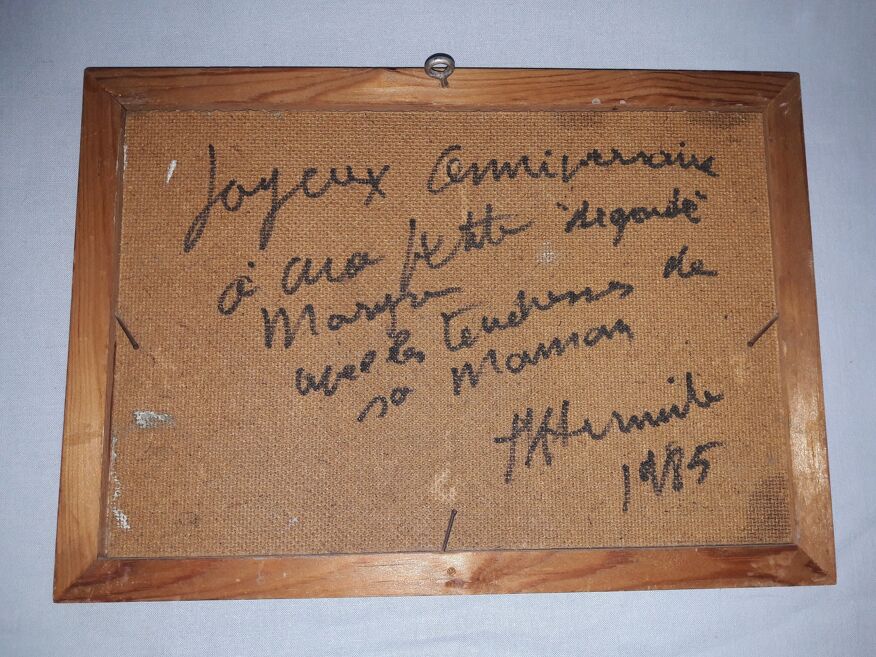 Joyeux Anniversaire
à ma petite
Maryse
avec les tendresses de
sa Maman
1985